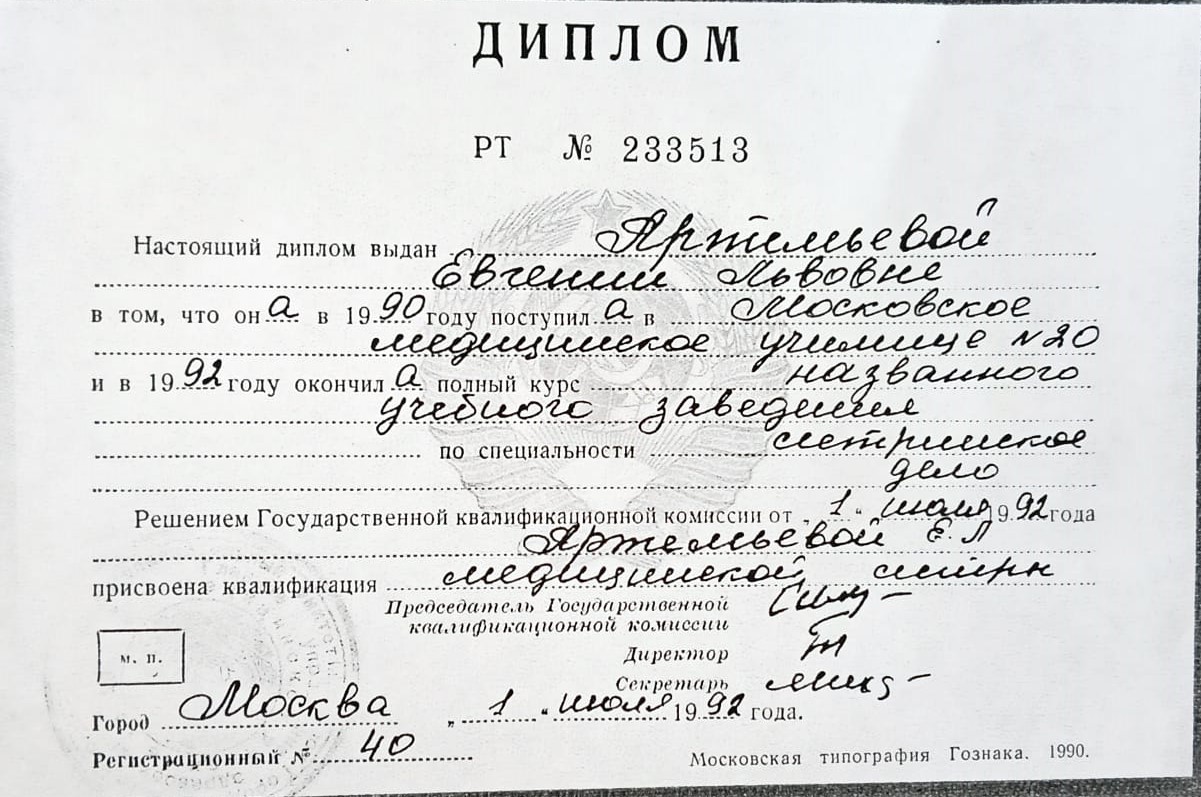 ДИПЛОМ
РТ № 233513
Настоящий диплом выдан Артемьевой
Евгении Львовне
в том, что она в 1990 году поступила в Московское
медицинское училище №20
и в 1992 году окончила полный курс названного
учебного заведения
по специальности сестринское
дело
Решением Государственной квалификационной комиссии от „1“ июля 1992 года
Артемьевой Е.Л
присвоена квалификация медицинской сестры
Председатель Государственной
квалификационной комиссии
Директор
Секретарь
м. п.
Город Москва „1“ июля 1992 года.
Регистрационный № 40
Московская типография Гознака. 1990.